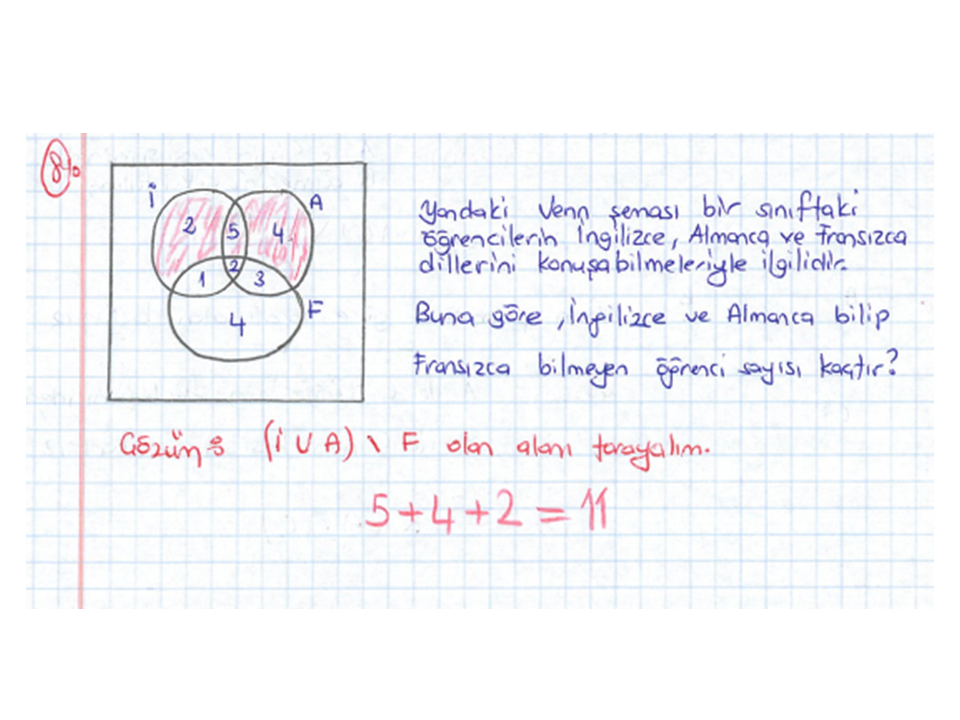 8%
İ
A
2
5
4
2
1
3
F
4
Yandaki Venn şeması bir sınıftaki
öğrencilerin İngilizce, Almanca ve Fransızca
dillerini konuşabilmeleriyle ilgilidir.
Buna göre, İngilizce ve Almanca bilip
Fransızca bilmeyen öğrenci sayısı kaçtır?
Çözüm: (İ ∪ A) \ F olan alanı tarayalım.
5+4+2=11